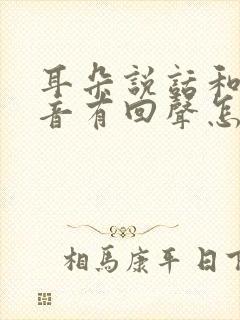 耳朵説話和
音有回聲怎
相馬康平 日下